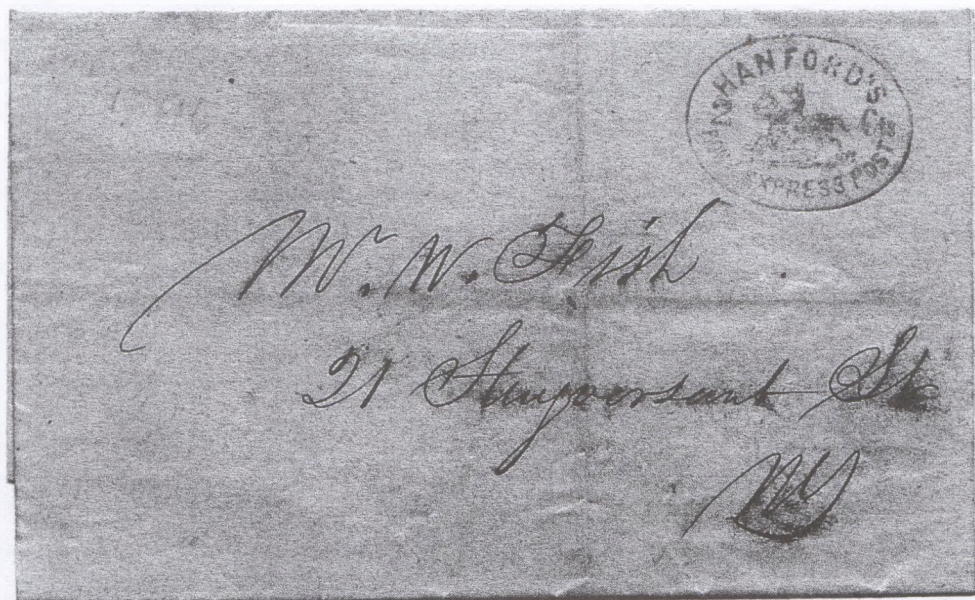 HANFORD'S
2 Cts
EXPRESS POST
Mr. W. Fish
21 Stuyversant St
NY